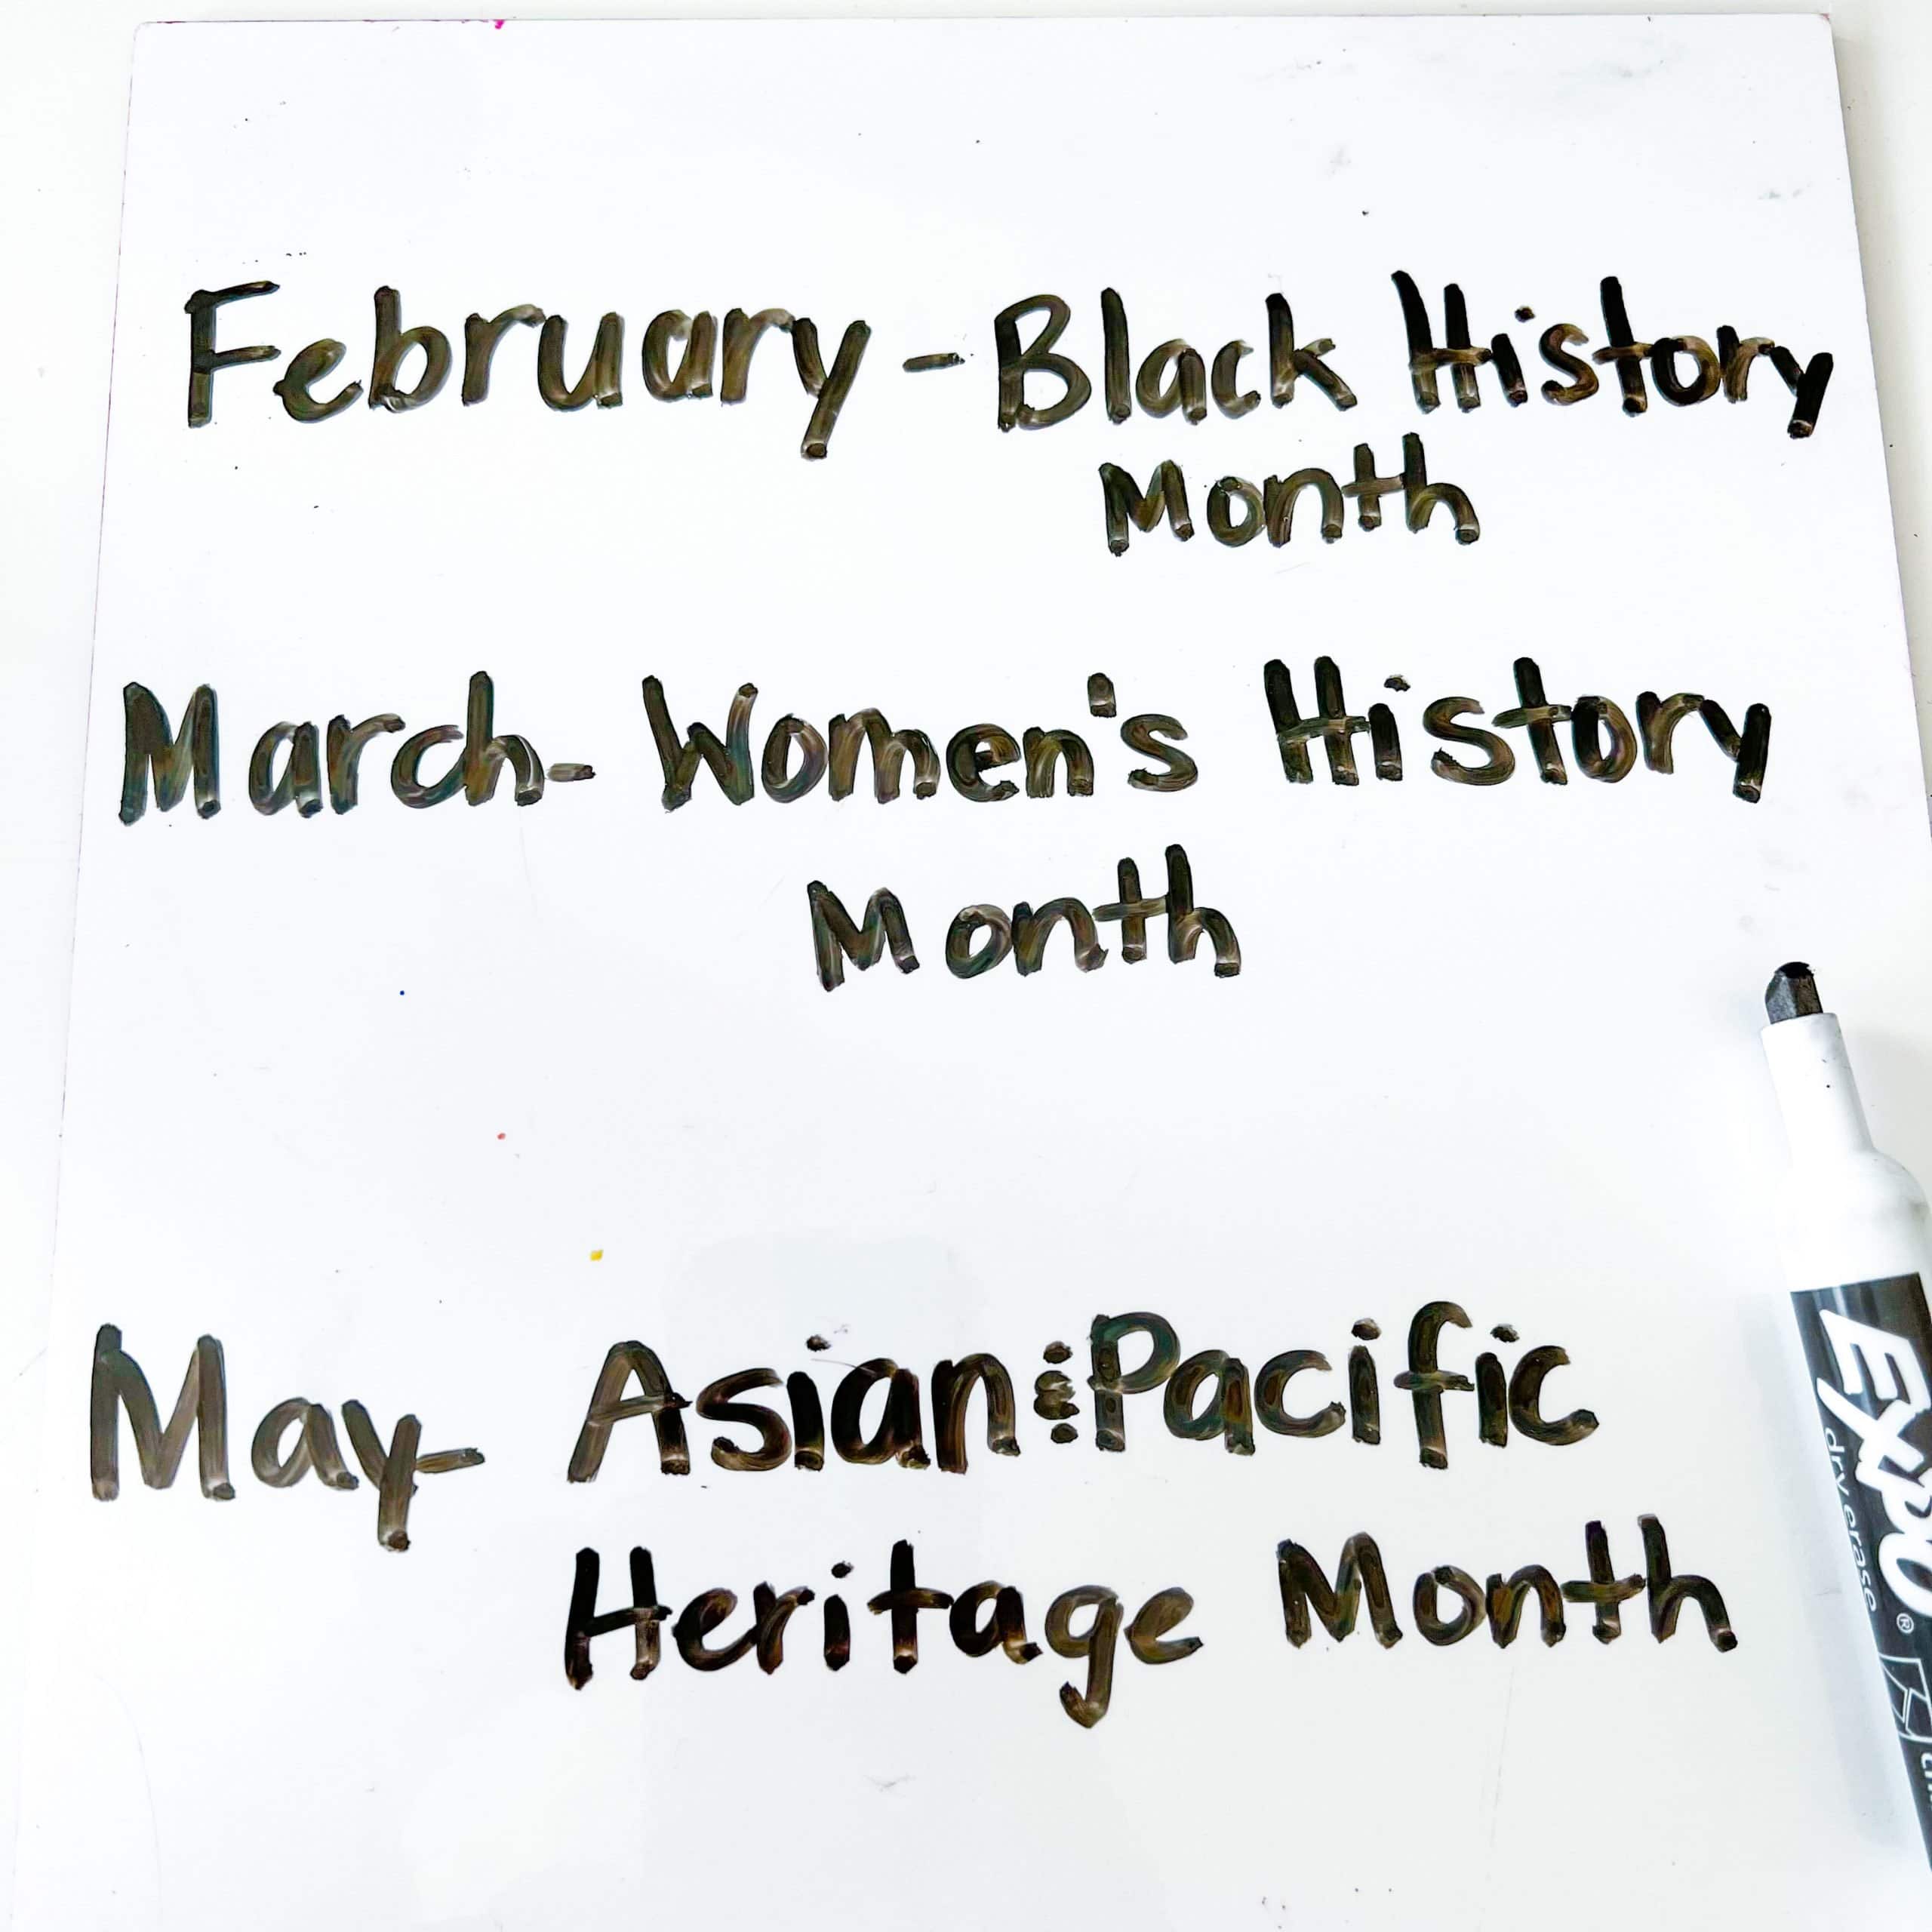 February - Black History
Month
March- Women's History
Month
May- Asian & Pacific
Heritage Month
Expo®
dry erase